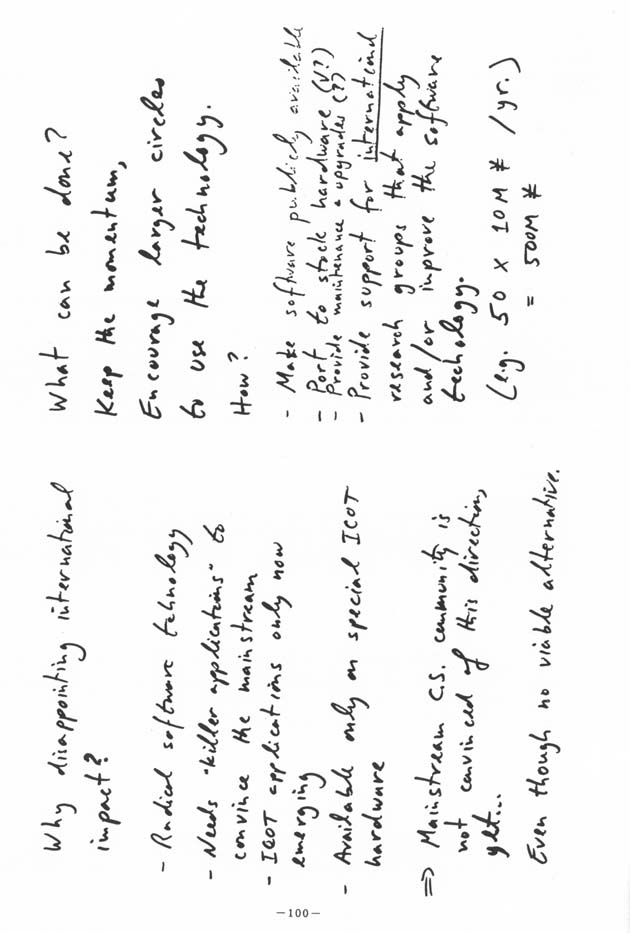 Why disappointing international
impact?
- Radical software tehnology
- Needs "killer applications" to
convince the mainstream
- ICOT applications only now
emerging
- Available only on special ICOT
hardware
⇒ Mainstream C.S. community is
not convinced of this direction,
yet...
Even though no viable alternative.
What can be done?
Keep the momentum,
Encourage larger circles
to use the technology.
How?
- Make software publicly available
- Port to stock hardware (V?)
- Provide maintenance & upgrades (??)
- Provide support for international
research groups that apply
and/or improve the software
techology.
(e.g. 50 x 10M ¥ /yr.)
= 500M ¥
—100—